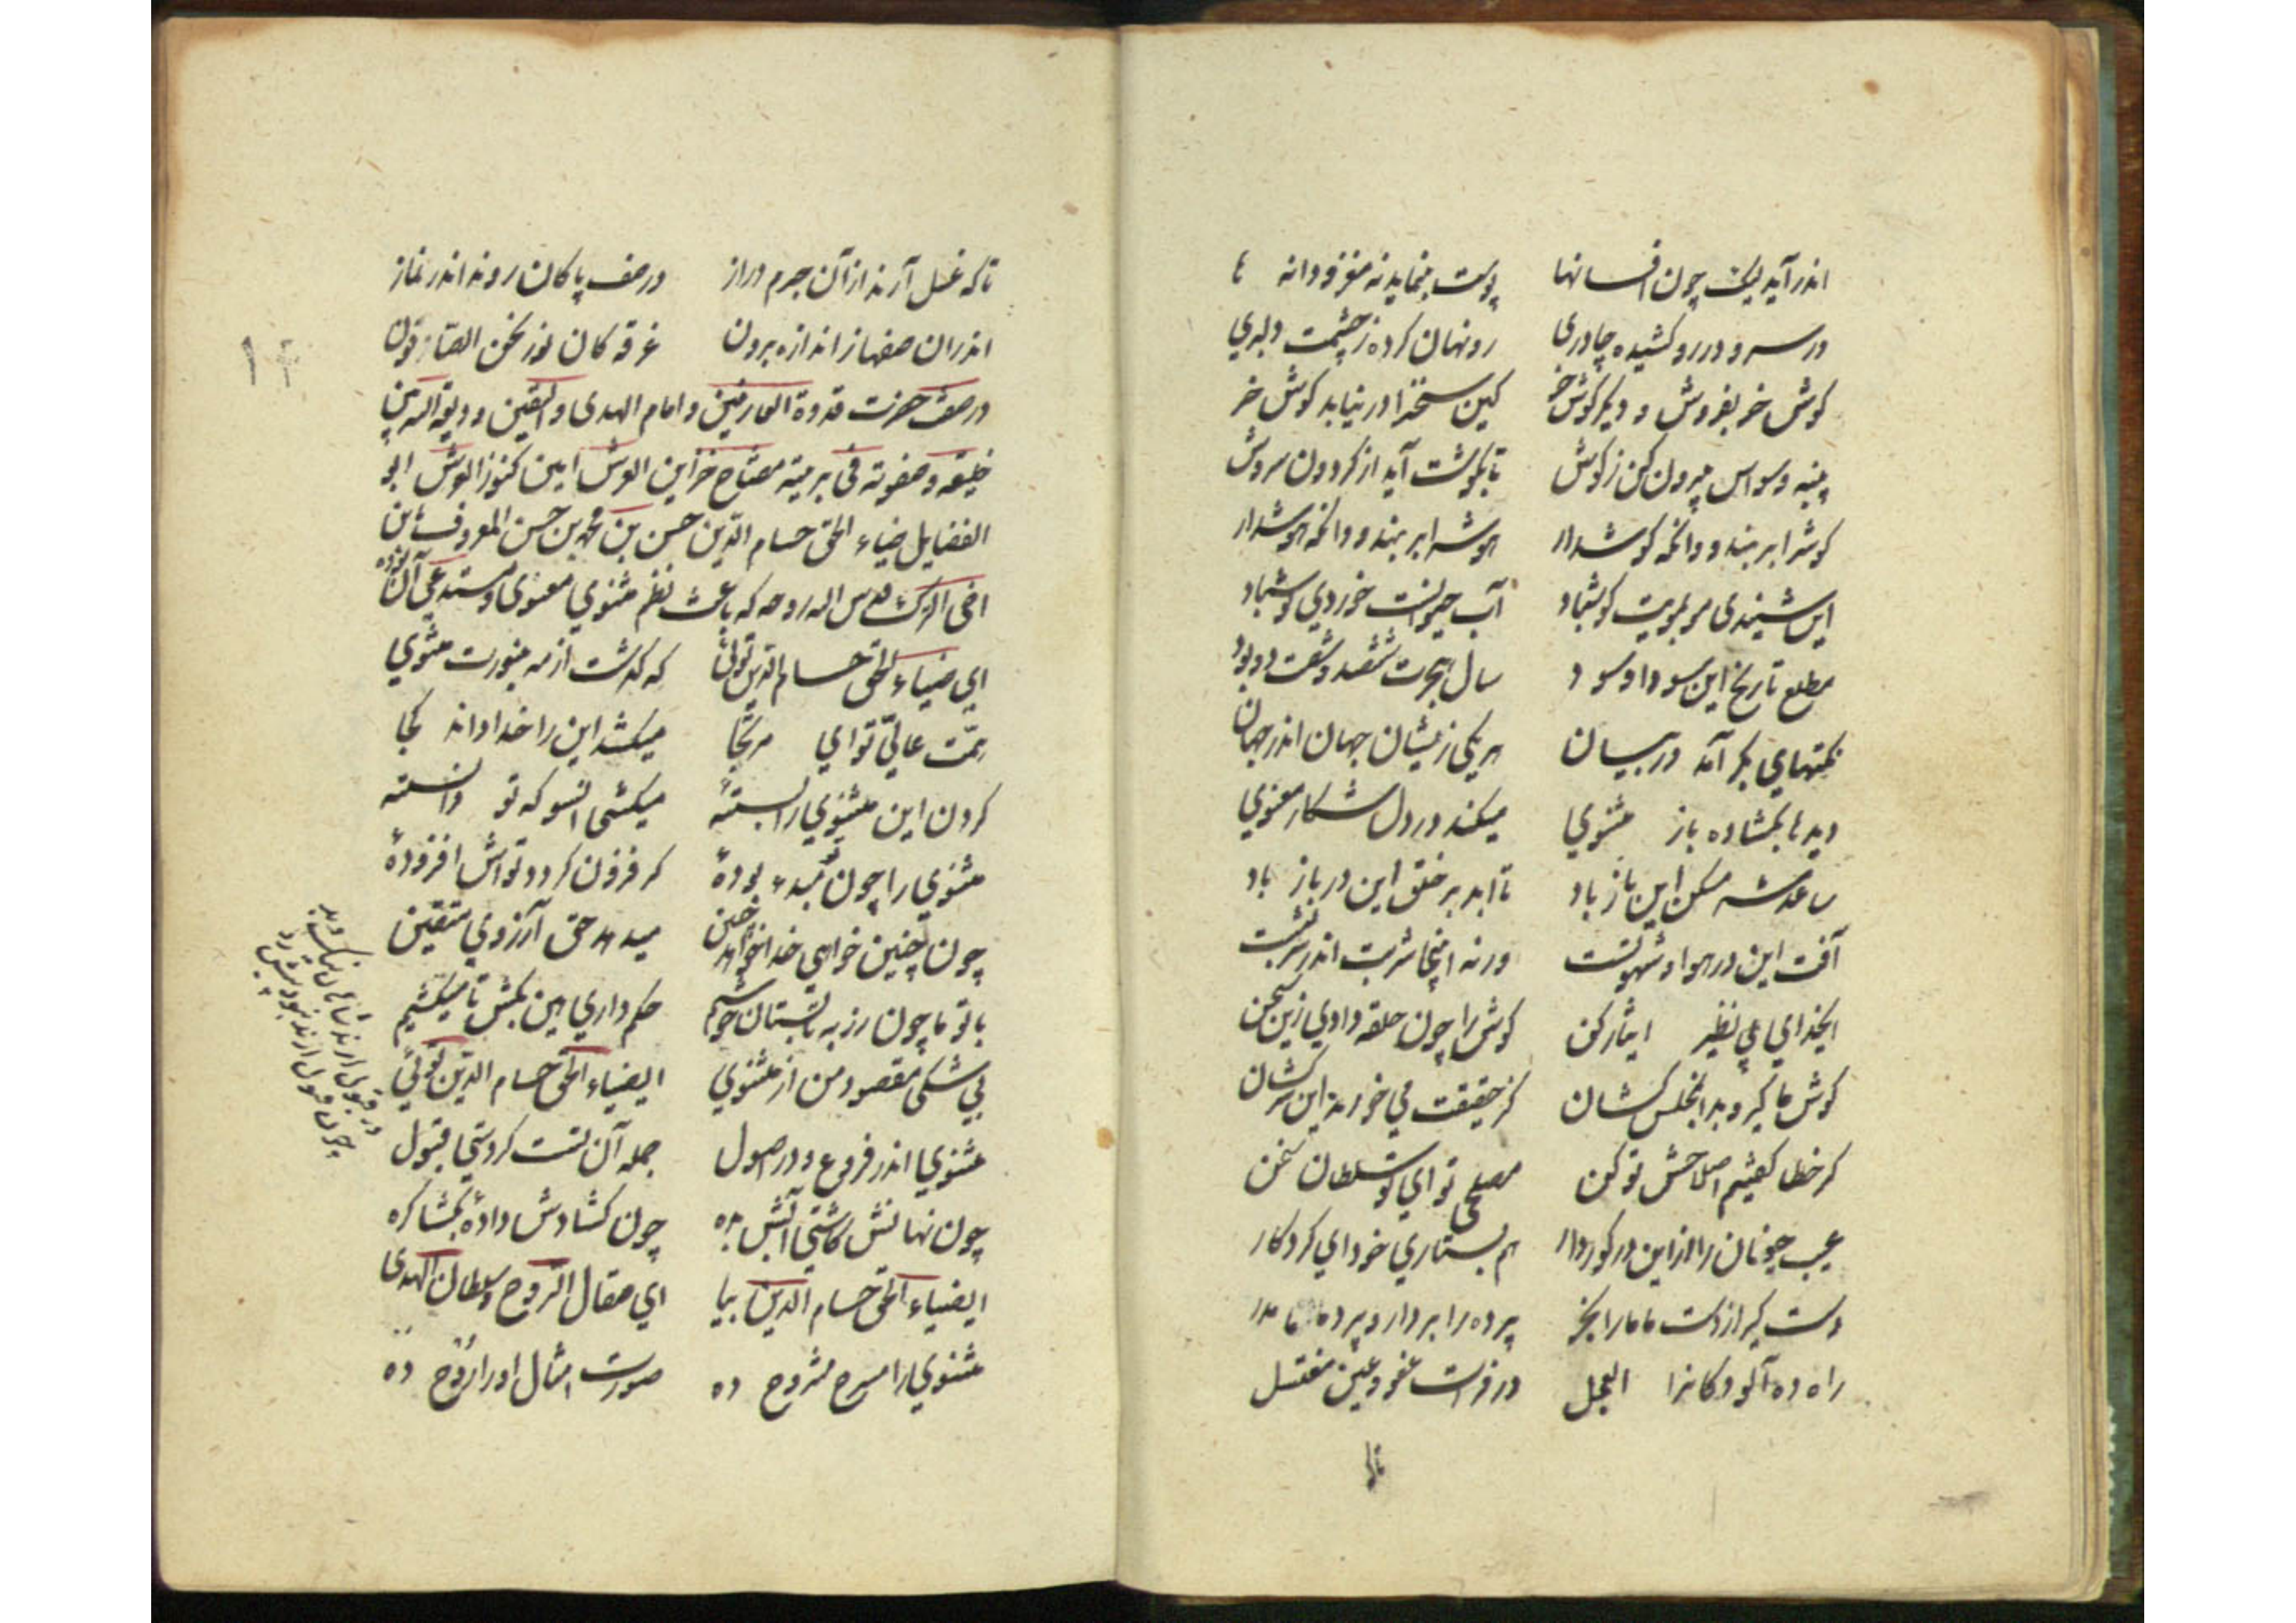 اندر آید لیک چون افسانها پوست بنماید نه مغز و دانه ها
در سر و در رو کشیده چادری رو نهان کرده ز چشمت دلبری
کوش خر بفروش و دیکر کوش خر کین سخن را در نیابد کوش خر
پنبه وسواس بیرون کن ز کوش تا بکوشت آید از کردون سروش
کوش را بربند و وانکه کوش دار هوش را بربند و وانکه هوش دار
این شنیدی مو بمویت کوش باد آب حیوانست خوردی نوش باد
مطلع تاریخ این سودا و سود سال هجرت ششصد و شصت و دو بود
نکتهای بکر آمد در بیان هر یکی زیشان جهان اندر جهان
دیدها بکشاده باز مثنوی میکند در دل شکار معنوی
ساعد شه مسکن این باز باد تا ابد بر خلق این در باز باد
آفت این در هوا و شهوتست ورنه اینجا شربت اندر شربتست
ایخدای بی نظیر ایثار کن کوش را چون حلقه دادی زین سخن
کوش ما کیر و بدانمجلس کشان کز حقیقت می خورند این سرکشان
کر خطا کفتیم اصلاحش تو کن مصلحی تو ای تو سلطان سخن
عیب جویان را ازین در کور دار هم بستاری خود ای کردکار
دست کیر از دست ما ما را بخر پرده را بردار و پرده ما مدر
راه ده آلودکانرا العجل در فرات عفو و عین مغتسل
تاکه
تا که غسل آرند از آن جرم دراز در صف پاکان روند اندر نماز
اندران صفها ز اندازه برون غرقه کان نور نحن الصادقون
در صفت حضرت قدوة العارفین و امام الهدی و الیقین و ودیعة الله بین
خلیقته و صفوته فی بریته مفتاح خزاین العرش امین کنوز الفرش ابو
الفضایل ضیاء الحق حسام الدین حسن بن محمد بن حسن المعروف بابن
اخی الترک قدس الله روحه که باعث نظم مثنوی معنوی و مستدعی آن بوده
ای ضیاء الحق حسام الدین توئی که کذشت از مه بنورت مثنوی
همت عالی تو ای مرتجا میکشد این را خدا داند کجا
کردن این مثنوی را بستهٔ میکشی آنسو که تو دانستهٔ
مثنوی را چون تو مبدء بودهٔ کر فزون کردد تواش افزودهٔ
چون چنین خواهی خدا خواهد چنین میدهد حق آرزوی متقین
با تو ما چون رز بتابستان خوشیم حکم داری هین بکش تا میکشیم
بی شکی مقصود من از مثنوی ایضیاء الحق حسام الدین توئی
مثنوی اندر فروع و در اصول جمله آن تست کردستی قبول
در قبول ارند شاهان نیک و بد
چون قبول ارند نبود بیش رد
چون نهالش کاشتی آبش بده چون کشادش دادهٔ بکشا کره
ایضیاء الحق حسام الدین بیا ای صقال الروح و سلطان الهدی
مثنوی را مسرح مشروح ده صورت امثال او را روح ده